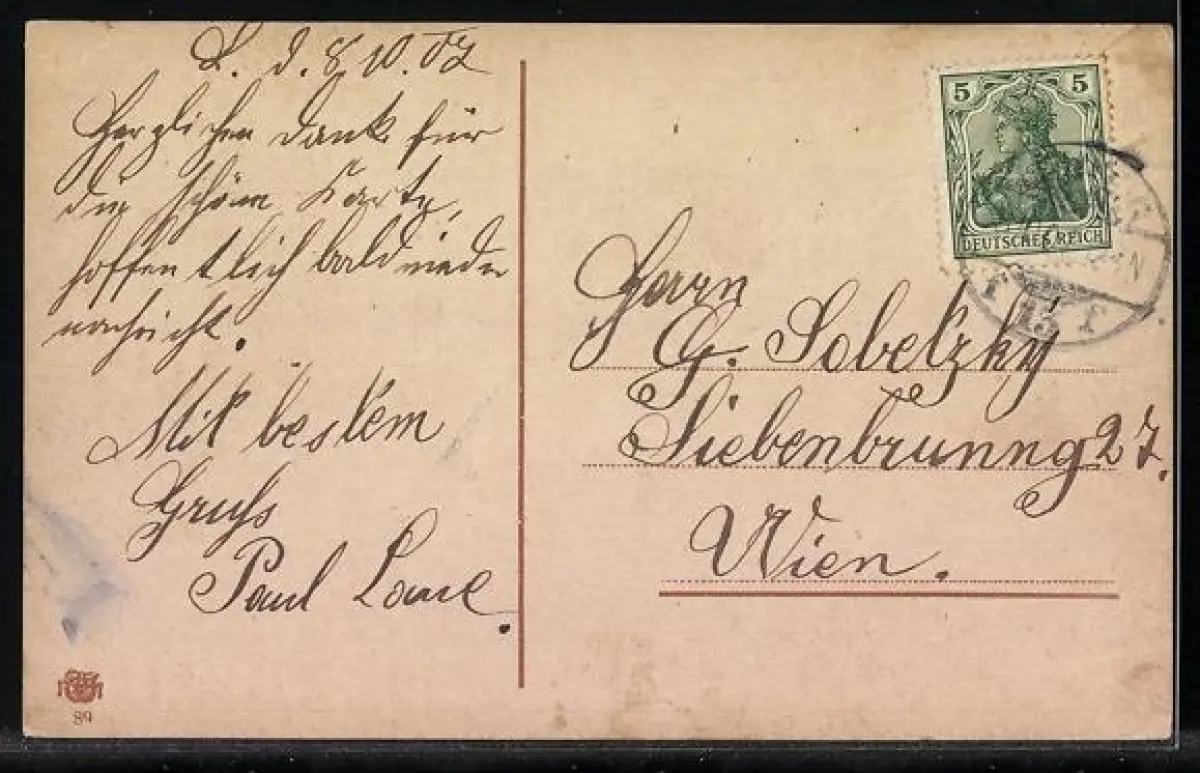 L. d. 8 10. 07
Herzlichen Dank für
die schöne Karte,
hoffentlich bald wieder
nachricht.
Mit bestem
Gruss
Paul
5 5
DEUTSCHES REICH
Herrn
G. Sobelzky
Siebenbrunng 27.
Wien.
89